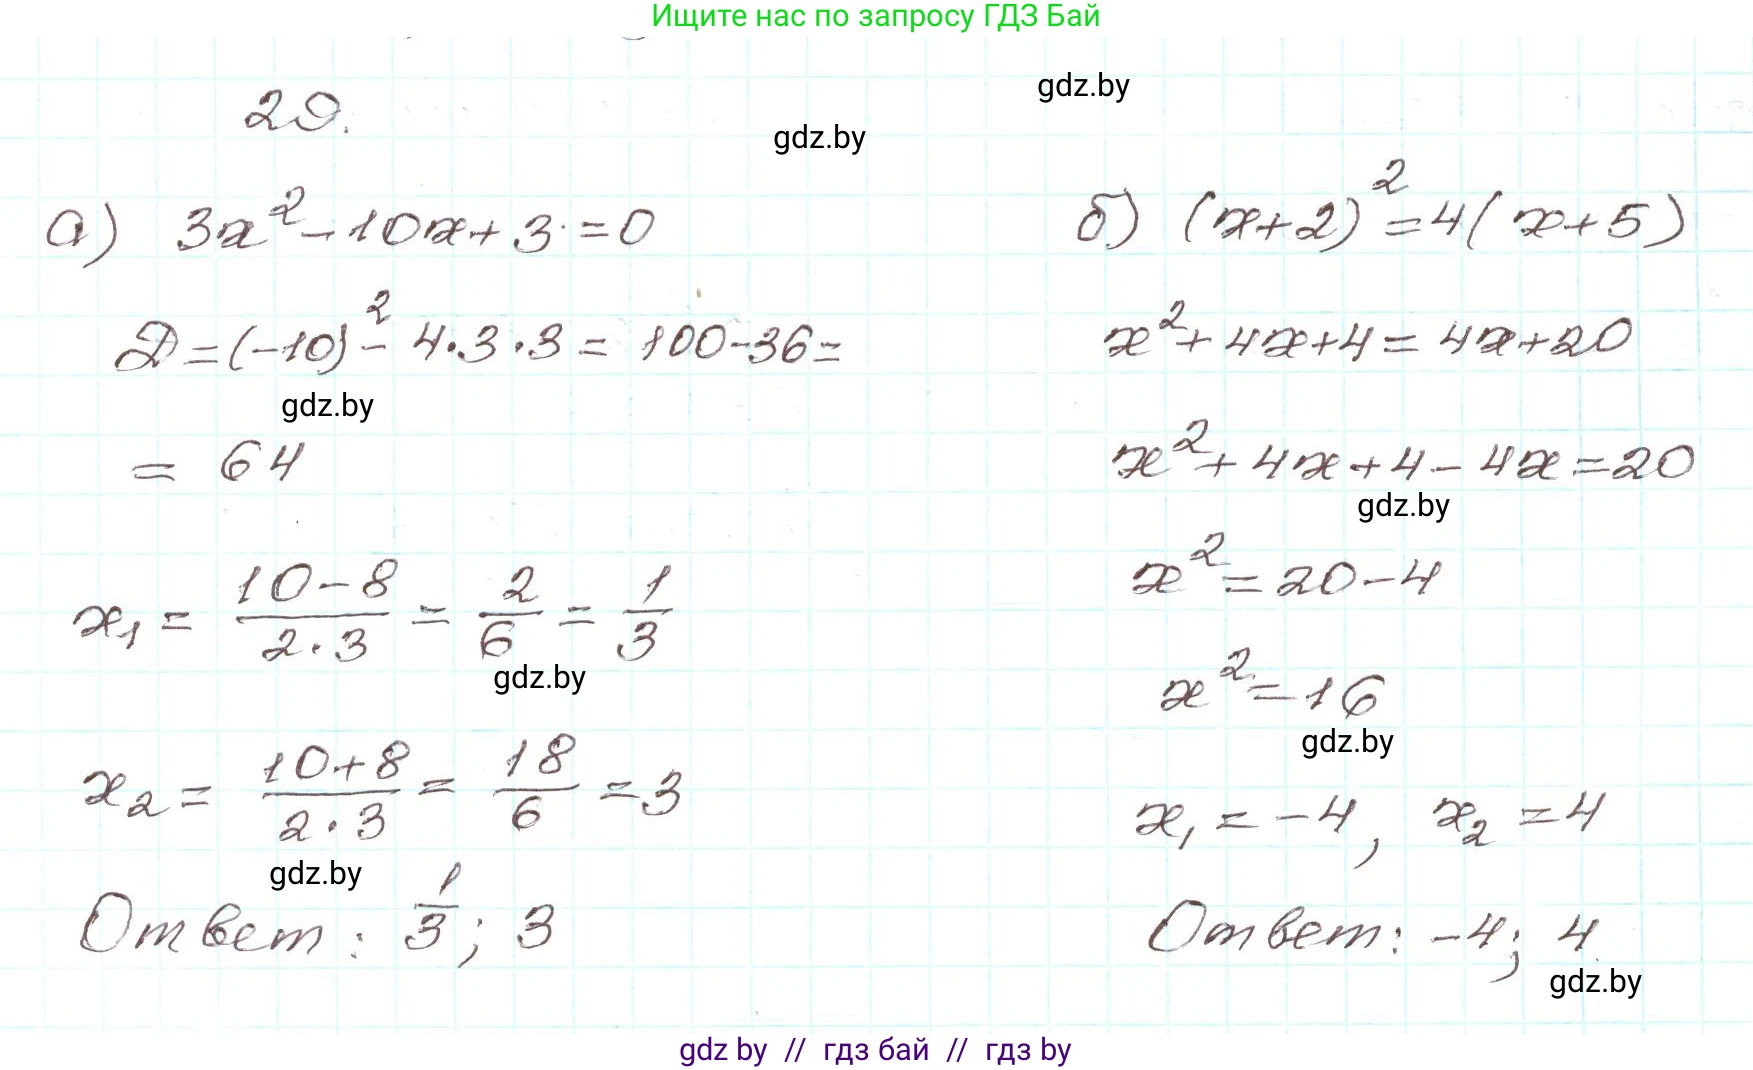 Ищите нас по запросу ГДЗ Бай
gdz.by
29.
gdz.by
а) 3x² - 10x + 3 = 0
D = (-10)² - 4·3·3 = 100 - 36 =
gdz.by
= 64
x₁ = (10 - 8)/(2·3) = 2/6 = 1/3
gdz.by
x₂ = (10 + 8)/(2·3) = 18/6 = 3
gdz.by
Ответ: 1/3; 3
б) (x+2)² = 4(x+5)
x² + 4x + 4 = 4x + 20
x² + 4x + 4 - 4x = 20
gdz.by
x² = 20 - 4
x² = 16
gdz.by
x₁ = -4, x₂ = 4
Ответ: -4; 4
gdz.by
gdz by // гдз бай // гдз by